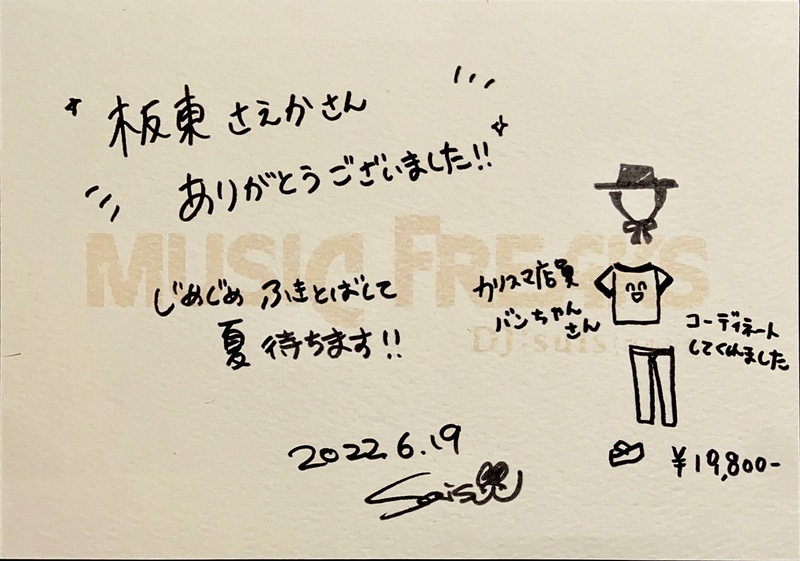 板東さえかさん
ありがとうございました!!
MUSIQ FREAKS
じめじめ ふきとばして
夏 待ちます!!
カリスマ店員
バンちゃん
さん
DJ:suis
コーディネート
してくれました
2022.6.19
suis
¥19,800-